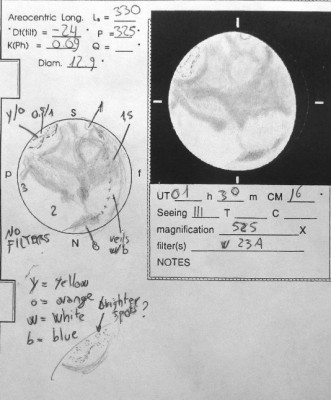 Areocentric Long. Ls = 330
°Dt(tilt) = -24 P = 325°
K(Ph) = 0.09 Q =
Diam. 12.9"
y/o 0.5/1
S
1
15
P
f
3
2
N
NO
FILTERS
veils
w/b
6
y = Yellow
o = orange
w = White
b = blue
brighter
spots?
UT 01 h 30 m CM 16
Seeing III T C
magnification 525 X
filter(s) W 23A
NOTES